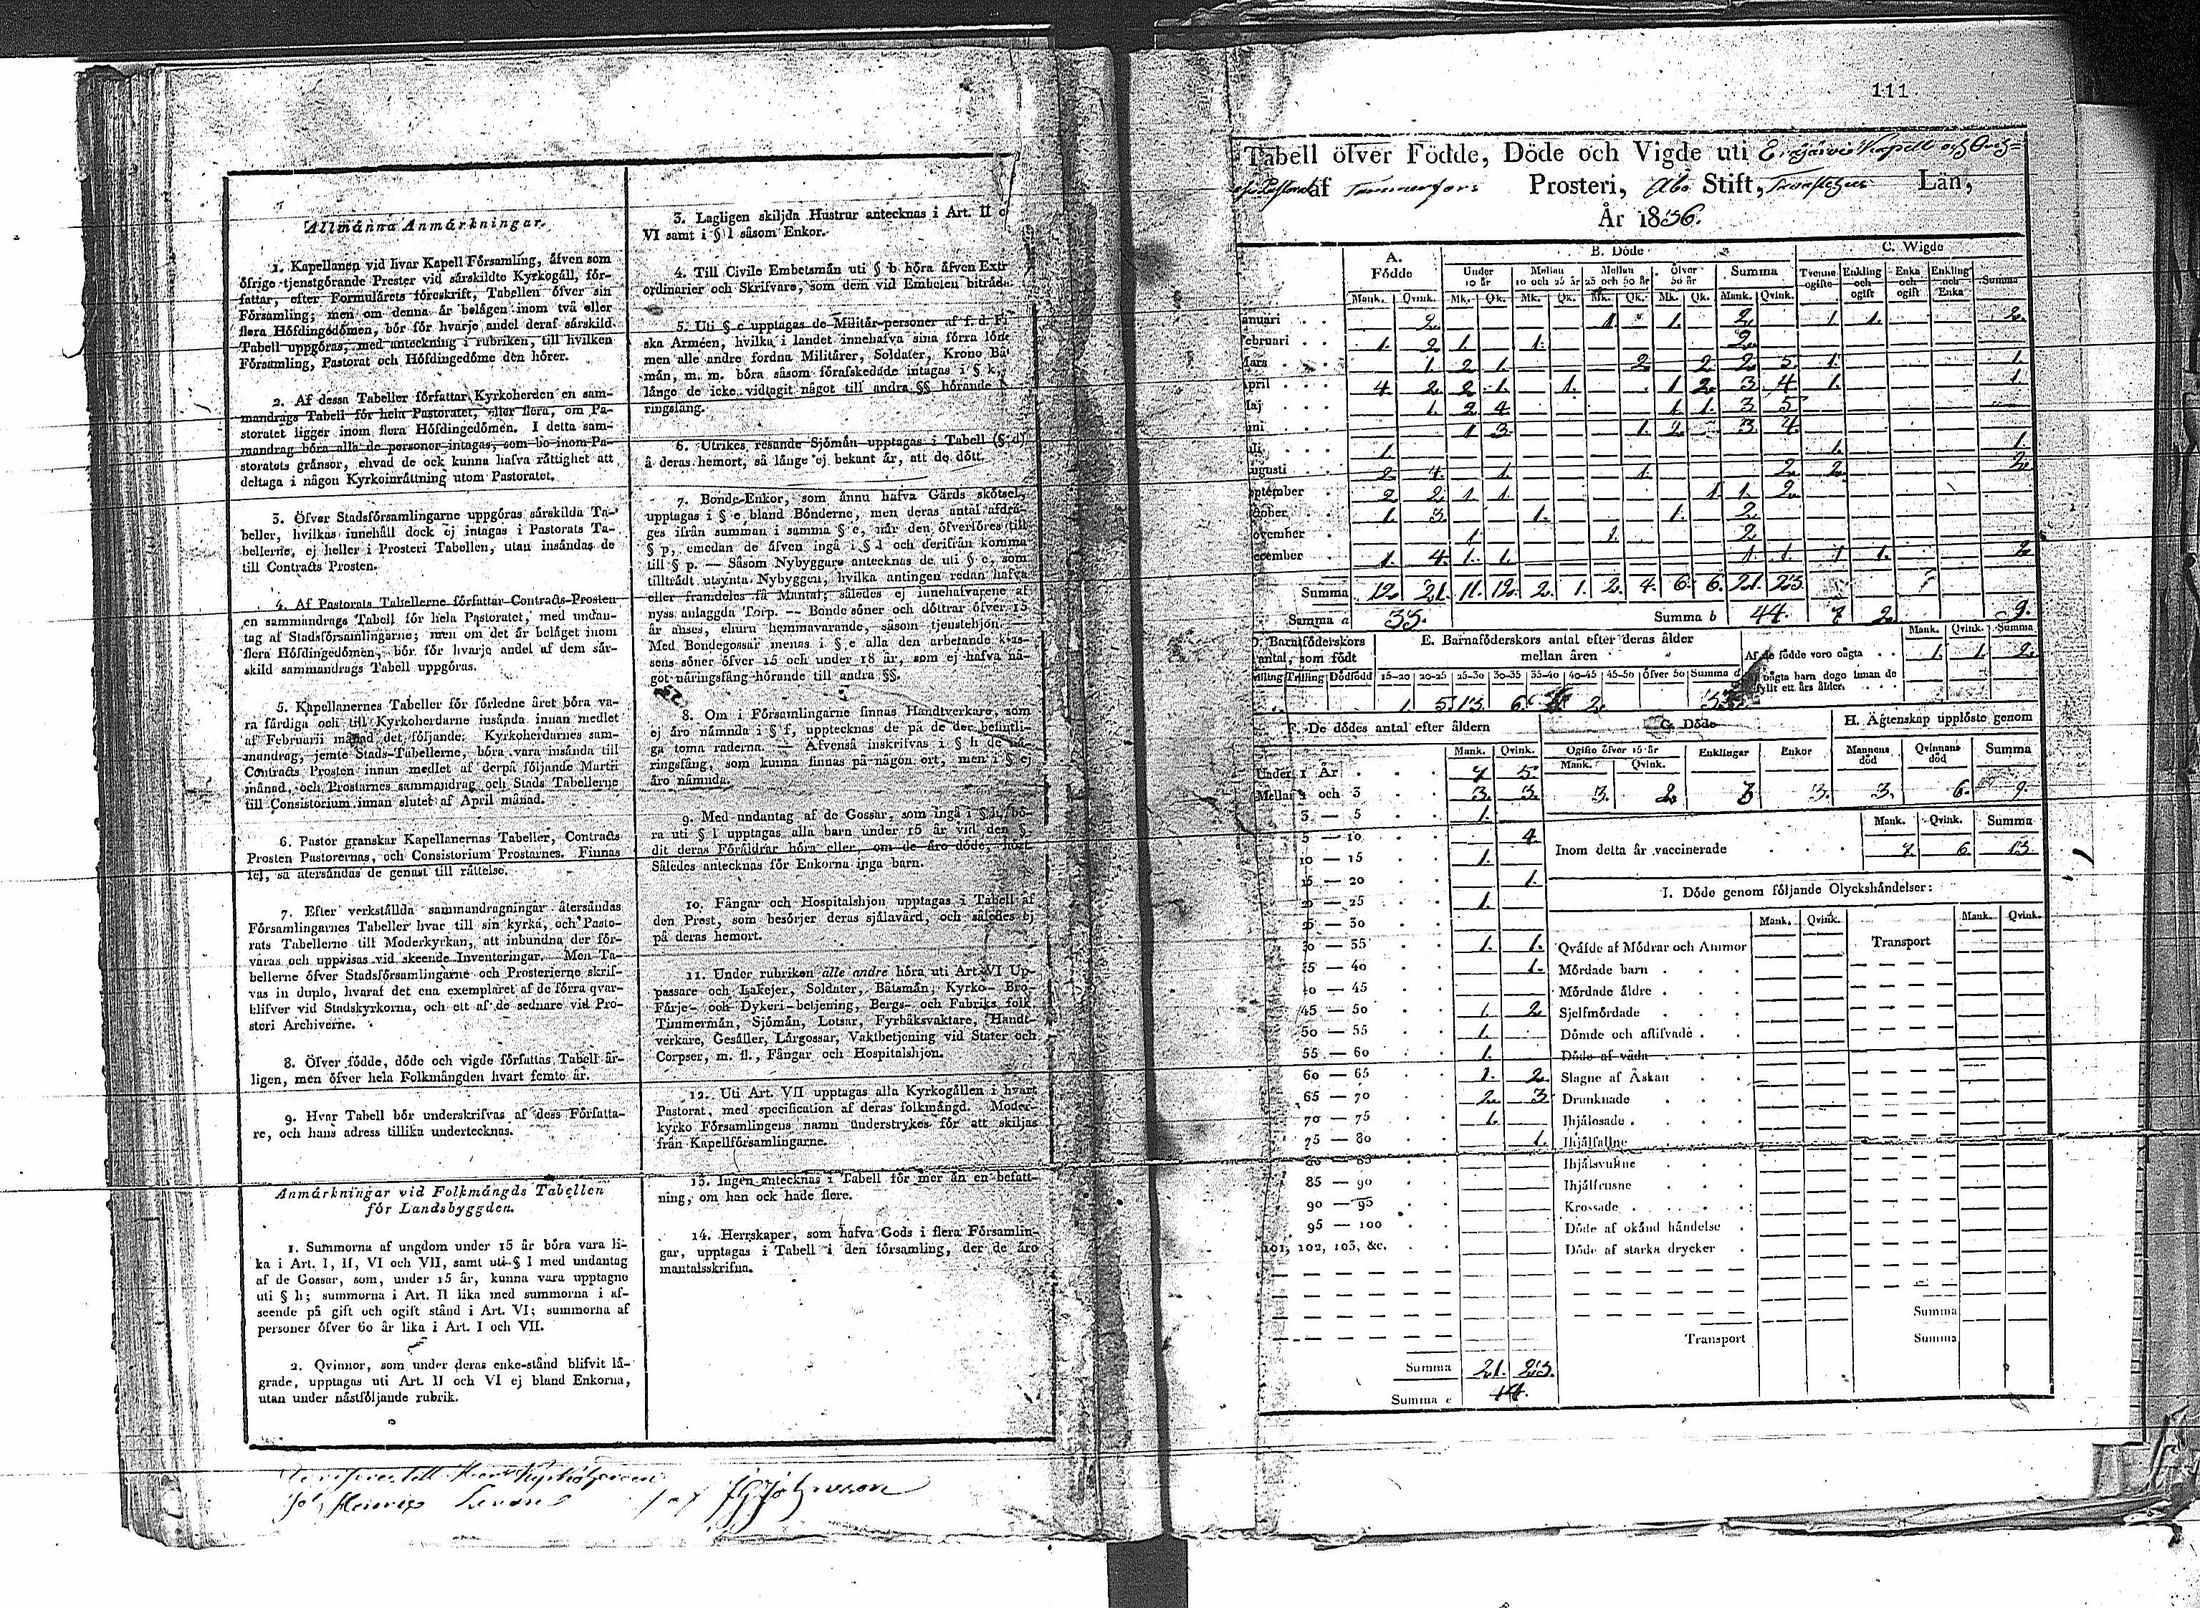 Allmänna Anmärkningar.
1. Kapellanen vid hvar Kapell Församling, äfven som
öfrige tjenstgörande Prester vid särskildte Kyrkogäll, för-
fattar, efter Formulärets föreskrift, Tabellen öfver sin
Församling; men om denna är belägen inom två eller
flera Höfdingedömen, bör för hvarje andel deraf särskild
Tabell uppgöras, med anteckning i rubriken, till hvilken
Församling, Pastorat och Höfdingedöme den hörer.
2. Af dessa Tabeller författar Kyrkoherden en sam-
mandrags Tabell för hela Pastoratet, eller flera, om Pa-
storatet ligger inom flera Höfdingedömen. I detta sam-
mandrag böra alla de personer intagas, som bo inom Pa-
storatets gränsor, ehvad de ock kunna hafva rättighet att
deltaga i någon Kyrkoinrättning utom Pastoratet.
3. Öfver Stadsförsamlingarne uppgöras särskilda Ta-
beller, hvilkas innehåll dock ej intagas i Pastorats Ta-
bellerne, ej heller i Prosteri Tabellen, utan insändas de
till Contracts Prosten.
4. Af Pastorats Tabellerne författar Contracts-Prosten
en sammandrags Tabell för hela Pastoratet, med undan-
tag af Stadsförsamlingarne; men om det är beläget inom
flera Höfdingedömen, bör för hvarje andel af dem sär-
skild sammandrags Tabell uppgöras.
5. Kapellanernes Tabeller för förledne året böra va-
ra färdiga och till Kyrkoherdarne insända innan medlet
af Februarii månad det följande. Kyrkoherdarnes sam-
mandrag, jemte Stads-Tabellerne, böra vara insända till
Contracts Prosten innan medlet af derpå följande Martii
månad, och Prostarnes sammandrag och Stads Tabellerne
till Consistorium innan slutet af April månad.
6. Pastor granskar Kapellanernas Tabeller, Contracts
Prosten Pastorernas, och Consistorium Prostarnes. Finnas
fel, så återsändas de genast till rättelse.
7. Efter verkställda sammandragningar återsändas
Församlingarnes Tabeller hvar till sin kyrka, och Pasto-
rats Tabellerne till Moderkyrkan, att inbundna der för-
varas och uppvisas vid skeende Inventeringar. Men Ta-
bellerne öfver Stadsförsamlingarne och Prosterierne skrif-
vas in duplo, hvaraf det ena exemplaret af de förra qvar-
blifver vid Stadskyrkorna, och ett af de sednare vid Pro-
steri Archiverne.
8. Öfver födde, döde och vigde författas Tabell år-
ligen, men öfver hela Folkmängden hvart femte år.
9. Hvar Tabell bör underskrifvas af dess Författa-
re, och hans adress tillika undertecknas.
Anmärkningar vid Folkmängds Tabellen
för Landsbyggden.
1. Summorna af ungdom under 15 år böra vara li-
ka i Art. I, II, VI och VII, samt uti § l med undantag
af de Gossar, som, under 15 år, kunna vara upptagne
uti § h; summorna i Art. II lika med summorna i af-
seende på gift och ogift stånd i Art. VI; summorna af
personer öfver 60 år lika i Art. I och VII.
2. Qvinnor, som under deras enke-stånd blifvit lä-
grade, upptagas uti Art. II och VI ej bland Enkorna,
utan under nästföljande rubrik.
3. Lagligen skiljda Hustrur antecknas i Art. II o
VI samt i § l såsom Enkor.
4. Till Civile Embetsmän uti § b höra äfven Extr
ordinarier och Skrifvare, som dem vid Embeten biträda.
5. Uti § c upptagas de Militär-personer af f. d. Fi
ska Armeen, hvilka i landet innehafva sina förra löne
men alle andre fordna Militärer, Soldater, Krono Bå
män, m. m. böra såsom förafskedade intagas i § k,
länge de icke vidtagit något till andra §§ hörande
ringsfång.
6. Utrikes resande Sjömän upptagas i Tabell (§ d)
å deras hemort, så länge ej bekant är, att de dött.
7. Bonde-Enkor, som ännu hafva Gårds skötsel,
upptagas i § e bland Bönderne, men deras antal afdra-
ges ifrån summan i samma § e, när den öfverföres till
§ p, emedan de äfven ingå i § l och derifrån komma
till § p. — Såsom Nybyggare antecknas de uti § e, som
tillträdt utsynta Nybyggen, hvilka antingen redan hafva
eller framdeles få Mantal; således ej innehafvarene af
nyss anlaggda Torp. — Bonde söner och döttrar öfver 15
år anses, ehuru hemmavarande, såsom tjenstehjon. —
Med Bondegossar menas i § e alla den arbetande klas-
sens söner öfver 15 och under 18 år, som ej hafva nå-
got näringsfång hörande till andra §§.
8. Om i Församlingarne finnas Handtverkare, som
ej äro nämnda i § f, upptecknas de på de der befintli-
ga toma raderna. — Äfvenså inskrifvas i § h de nä-
ringsfång, som kunna finnas på någon ort, men i § ej
äro nämnda.
9. Med undantag af de Gossar, som ingå i § h, bö-
ra uti § l upptagas alla barn under 15 år vid den §
dit deras Föräldrar höra eller, om de äro döde, hört.
Således antecknas för Enkorna inga barn.
10. Fångar och Hospitalshjon upptagas i Tabell af
den Prest, som besörjer deras själavård, och således ej
på deras hemort.
11. Under rubriken alle andre höra uti Art. VI Up-
passare och Lakejer, Soldater, Båtsmän, Kyrko- Bro-
Färje- och Dykeri-betjening, Bergs- och Fabriks folk
Timmermän, Sjömän, Lotsar, Fyrbåksvaktare, Handt-
verkare, Gesäller, Lärgossar, Vaktbetjening vid Stater och
Corpser, m. fl., Fångar och Hospitalshjon.
12. Uti Art. VII upptagas alla Kyrkogällen i hvart
Pastorat, med specification af deras folkmängd. Moder-
kyrko Församlingens namn understrykes för att skiljas
från Kapellförsamlingarne.
13. Ingen antecknas i Tabell för mer än en befatt-
ning, om han ock hade flere.
14. Herrskaper, som hafva Gods i flera Församlin-
gar, upptagas i Tabell i den församling, der de äro
mantalsskrifna.
111
Tabell öfver Födde, Döde och Vigde uti
af Prosteri, Åbo Stift, Tavastehus Län,
År 1836.
A. Födde B. Döde C. Wigde
Under 10 år Mellan 10 och 25 år Mellan 25 och 50 år Öfver 50 år Summa Tvenne ogifte Enkling och ogift Enka och ogift Enkling och Enka Summa
Mank. Qvink. Mk. Qk. Mk. Qk. Mk. Qk. Mk. Qk. Mank. Qvink.
anuari 2. 1. 1. 2. 1. 1. 2.
ebruari 1. 2. 1. 1. 2.
ars 1. 2. 1. 2. 2. 2. 5. 1. 1.
April 4. 2. 2. 1. 1. 1. 2. 3. 4. 1. 1.
aj 1. 2. 4. 1. 1. 3. 5.
uni 1. 3. 1. 2. 3. 4.
uli 1. 1. 1.
ugusti 2. 4. 1. 1. 2. 2. 2.
eptember 2. 2. 1. 1. 1. 1. 2.
ctober 1. 3. 1. 1. 2.
ovember 1. 1. 2.
ecember 1. 4. 1. 1. 1. 1. 1. 1. 2.
Summa 12. 21. 11. 12. 2. 1. 2. 4. 6. 6. 21. 23.
Summa a 33. Summa b 44. 7 2. 9.
D. Barnaföderskors antal, som födt
Tvilling Trilling Dödfödd
E. Barnaföderskors antal efter deras ålder
mellan åren
15-20 20-25 25-30 30-35 35-40 40-45 45-50 Öfver 50 Summa d
1. 5. 13. 6. 2. 33
Mank. Qvink. Summa
Af de födde voro oägta 1. 1. 2.
oägta barn dogo innan de
fyllt ett års ålder.
F. De dödes antal efter åldern
Mank. Qvink.
Under 1 År 7 5.
Mellan 1 och 3 3. 3.
3 — 5 1.
5 — 10 4.
10 — 15 1.
15 — 20 1.
20 — 25 1.
25 — 30
30 — 35 1. 1.
35 — 40 1.
40 — 45
45 — 50 1. 2.
50 — 55 1.
55 — 60 1.
60 — 65 1. 2.
65 — 70 2. 3
70 — 75 1.
75 — 80 1.
80 — 85
85 — 90
90 — 95
95 — 100
101, 102, 103, &c.
Summa 21. 23.
Summa e 44.
G. Döde
Ogifte öfver 15 år Enklingar Enkor
Mank. Qvink.
3. 2. 3 3.
H. Ägtenskap upplöste genom
Mannens död Qvinnans död Summa
3. 6. 9.
Mank. Qvink. Summa
Inom detta år vaccinerade 7. 6. 13.
I. Döde genom följande Olyckshändelser:
Mank. Qvink. Mank. Qvink.
Qväfde af Mödrar och Ammor Transport
Mördade barn
Mördade äldre
Sjelfmördade
Dömde och aflifvade
Döde af våda
Slagne af Åskan
Drunknade
Ihjälosade
Ihjälfallne
Ihjälsvultne
Ihjälfrusne
Krossade
Döde af okänd händelse
Döde af starka drycker
Summa
Transport Summa